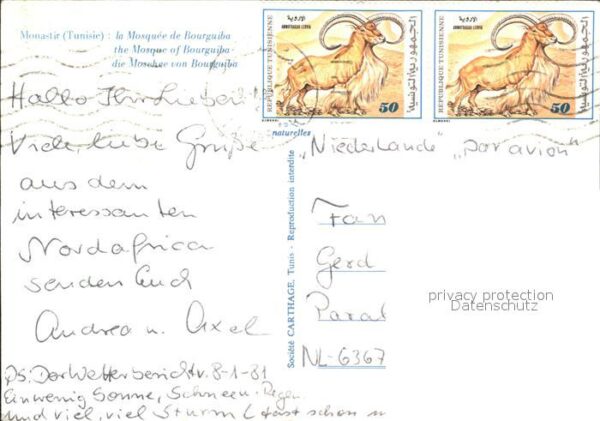 Monastir (Tunisie) : la Mosquée de Bourguiba
the Mosque of Bourguiba
die Moschee von Bourguiba
REPUBLIQUE TUNISIENNE
AMMOTRAGUS LERVIA
الأروية
الجمهورية التونسية
50
REPUBLIQUE TUNISIENNE
AMMOTRAGUS LERVIA
الأروية
الجمهورية التونسية
50
naturelles
Hallo Ihr Lieben!
Viele liebe Grüße
aus dem
interessanten
Nordafrica
senden Euch
Andrea u. Axel
PS: Der Wetterbericht v. 8-1-81
Ein wenig Sonne, Schnee u. Regen
und viel, viel Sturm (fast schon
Société CARTHAGE, Tunis - Reproduction interdite
"Niederlande" "par avion"
Fam
Gerd
NL-6367
privacy protection
Datenschutz